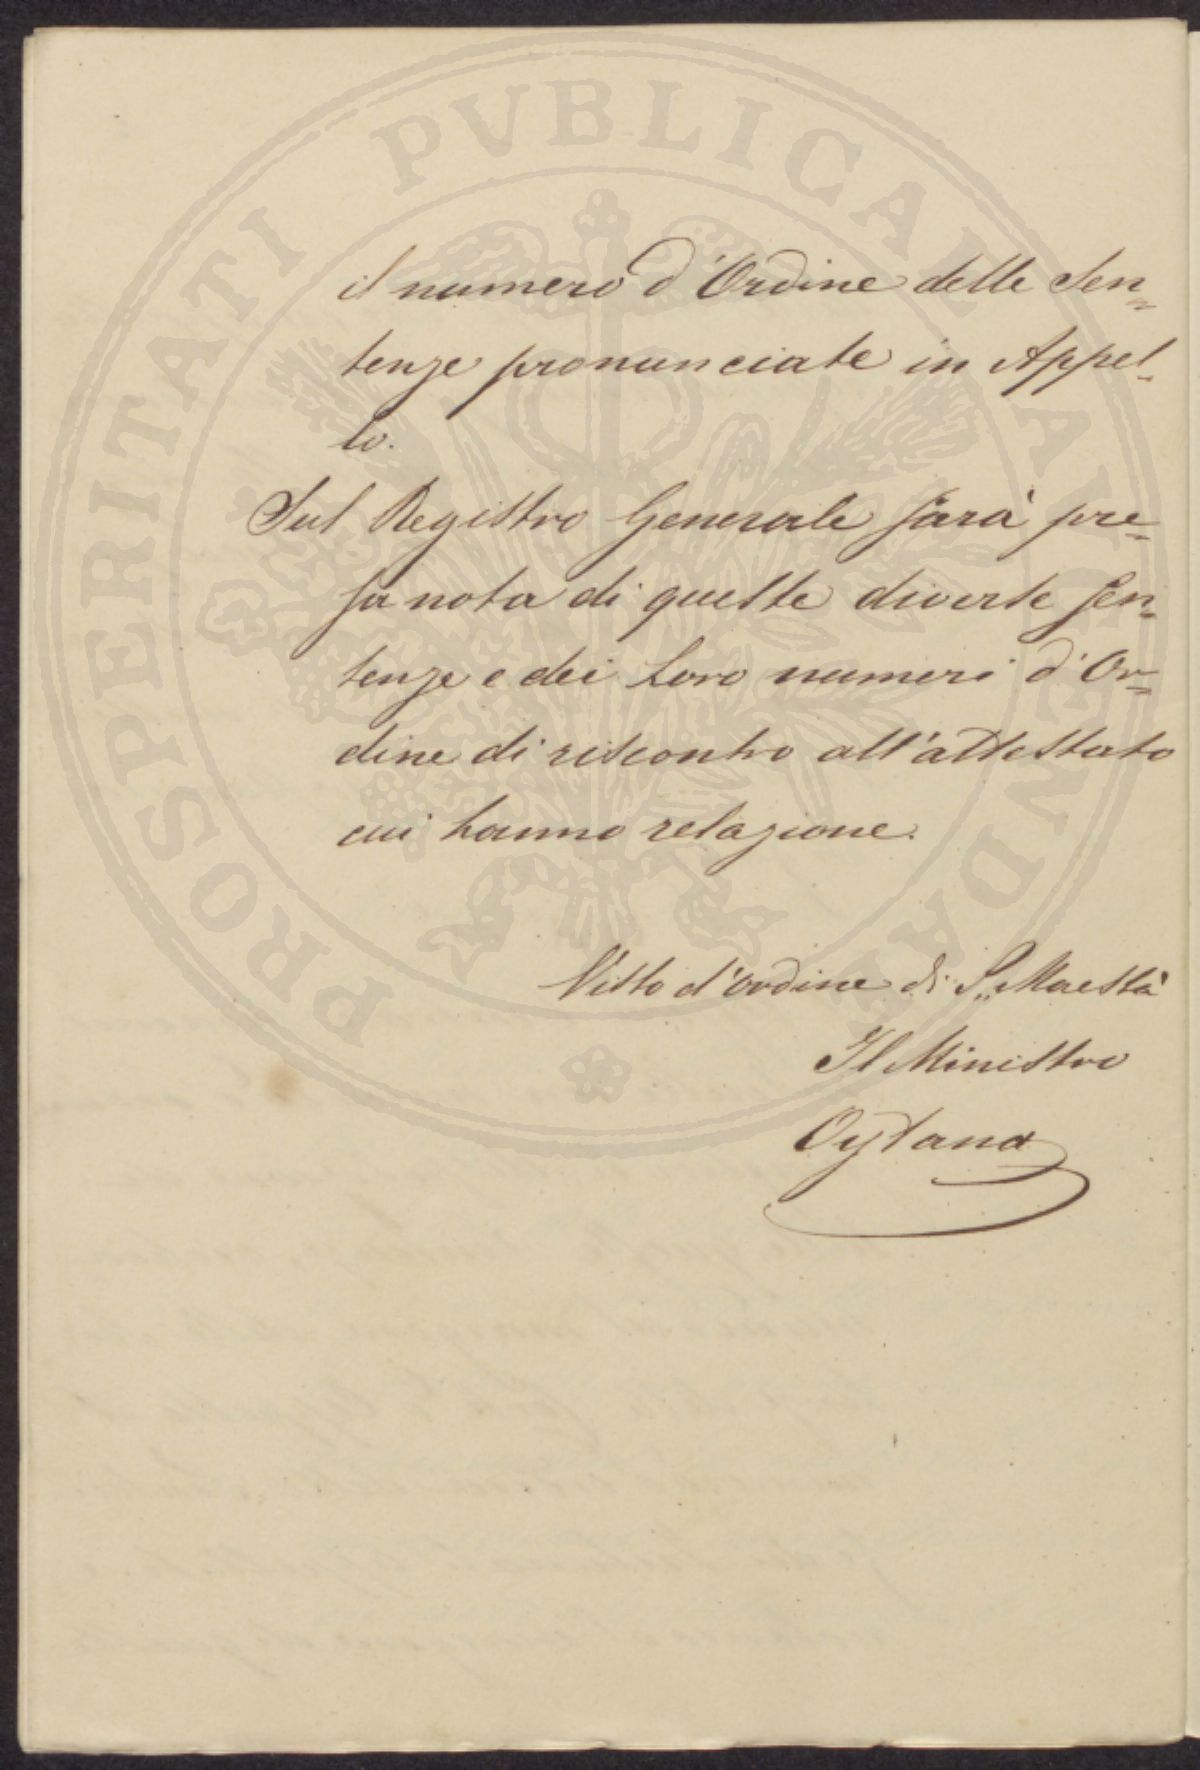 PROSPERITATI PVBLICAE AVGENDAE
il numero d'Ordine delle Sen=
tenze pronunciate in Appel=
lo.
Sul Registro Generale sarà pre=
sa nota di queste diverse sen=
tenze e dei loro numeri d'Or=
dine di riscontro all'attestato
cui hanno relazione.
Visto d'ordine di S. Maestà
Il Ministro
Oytana